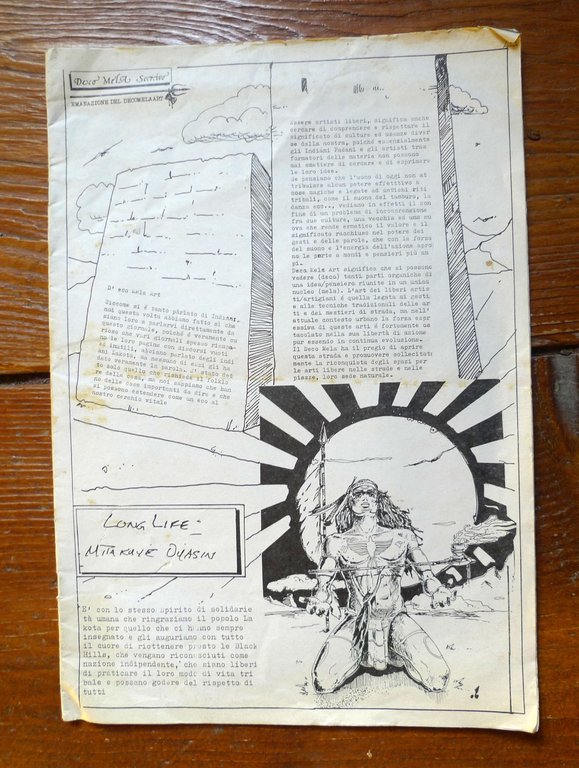 Deco MeLA Service
EMANAZIONE DEL DECOMELAART
D' eco Mela Art
Siccome si è tanto parlato di Indiani,
noi questa volta abbiamo fatto sì che
siano loro a parlarvi direttamente da
questo giornale, poiché è veramente cu
rioso che vari giornali spesso riempa
no le loro pagine con discorsi vuoti
ed inutili, abbiano parlato degli indi
ani Lakota, ma nessuno di essi gli ha
dato veramente la parola.
to solo quello che richiede il folklo
re della cosa, ma noi sappiamo che han
no delle cose importanti da dire e che
si possono estendere come un eco al
nostro cerchio vitale
essere artisti liberi, significa anche
cercare di comprendere e rispettare il
significato di culture ed usanze diver
se dalla nostra, poiché essenzialmente
gli Indiani Padani e gli artisti tras
formatori della materia non possono
mai smettere di cercare e di esprimere
le loro idee.
Se pensiamo che l'uomo di oggi non at
tribuisce alcun potere effettivo a
cose magiche e legate ad antichi riti
tribali, come il suono del tamburo, la
danza ecc.., vediamo in effetti il con
fine di una problema di incomprensione
fra due culture, una vecchia ed una nu
ova che rende ermatico il valore e il
significato racchiuso nel potere dei
gesti e delle parole, che con la forza
del suono e l'energia dell'azione apro
no le porte a mondi e pensieri più am
pi.
Deco Mela Art significa che si possono
vedere (deco) tanti parti organiche di
una idea/pensiero riunite in un unico
nucleo (mela). L'art dei liberi artis
ti/artigiani è quella legata ai gesti
e alle tecniche tradizionali delle ar
ti e dei mestieri di strada, ma nell'
attuale contesto urbano la forma espr
essiva di queste arti è fortemente os
tacolata nella sua libertà di azione
pur essendo in continua evoluzione.
Il Deco Mela ha il pregio di aprire
questa strada e promuovere sollecitat
mente la riconquista degli spazi per
le arti libere nelle strade e nelle
piazze, loro sede naturale.
LONG LIFE:
MITAKUYE OYASIN
E' con lo stesso spirito di solidarie
tà umana che ringraziamo il popolo La
kota per quello che ci hanno sempre
insegnato e gli auguriamo con tutto
il cuore di riottenere presto le Black
Hills, che vengano riconosciuti come
nazione indipendente, che siano liberi
di praticare il loro modo di vita tri
bale e possano godere del rispetto di
tutti